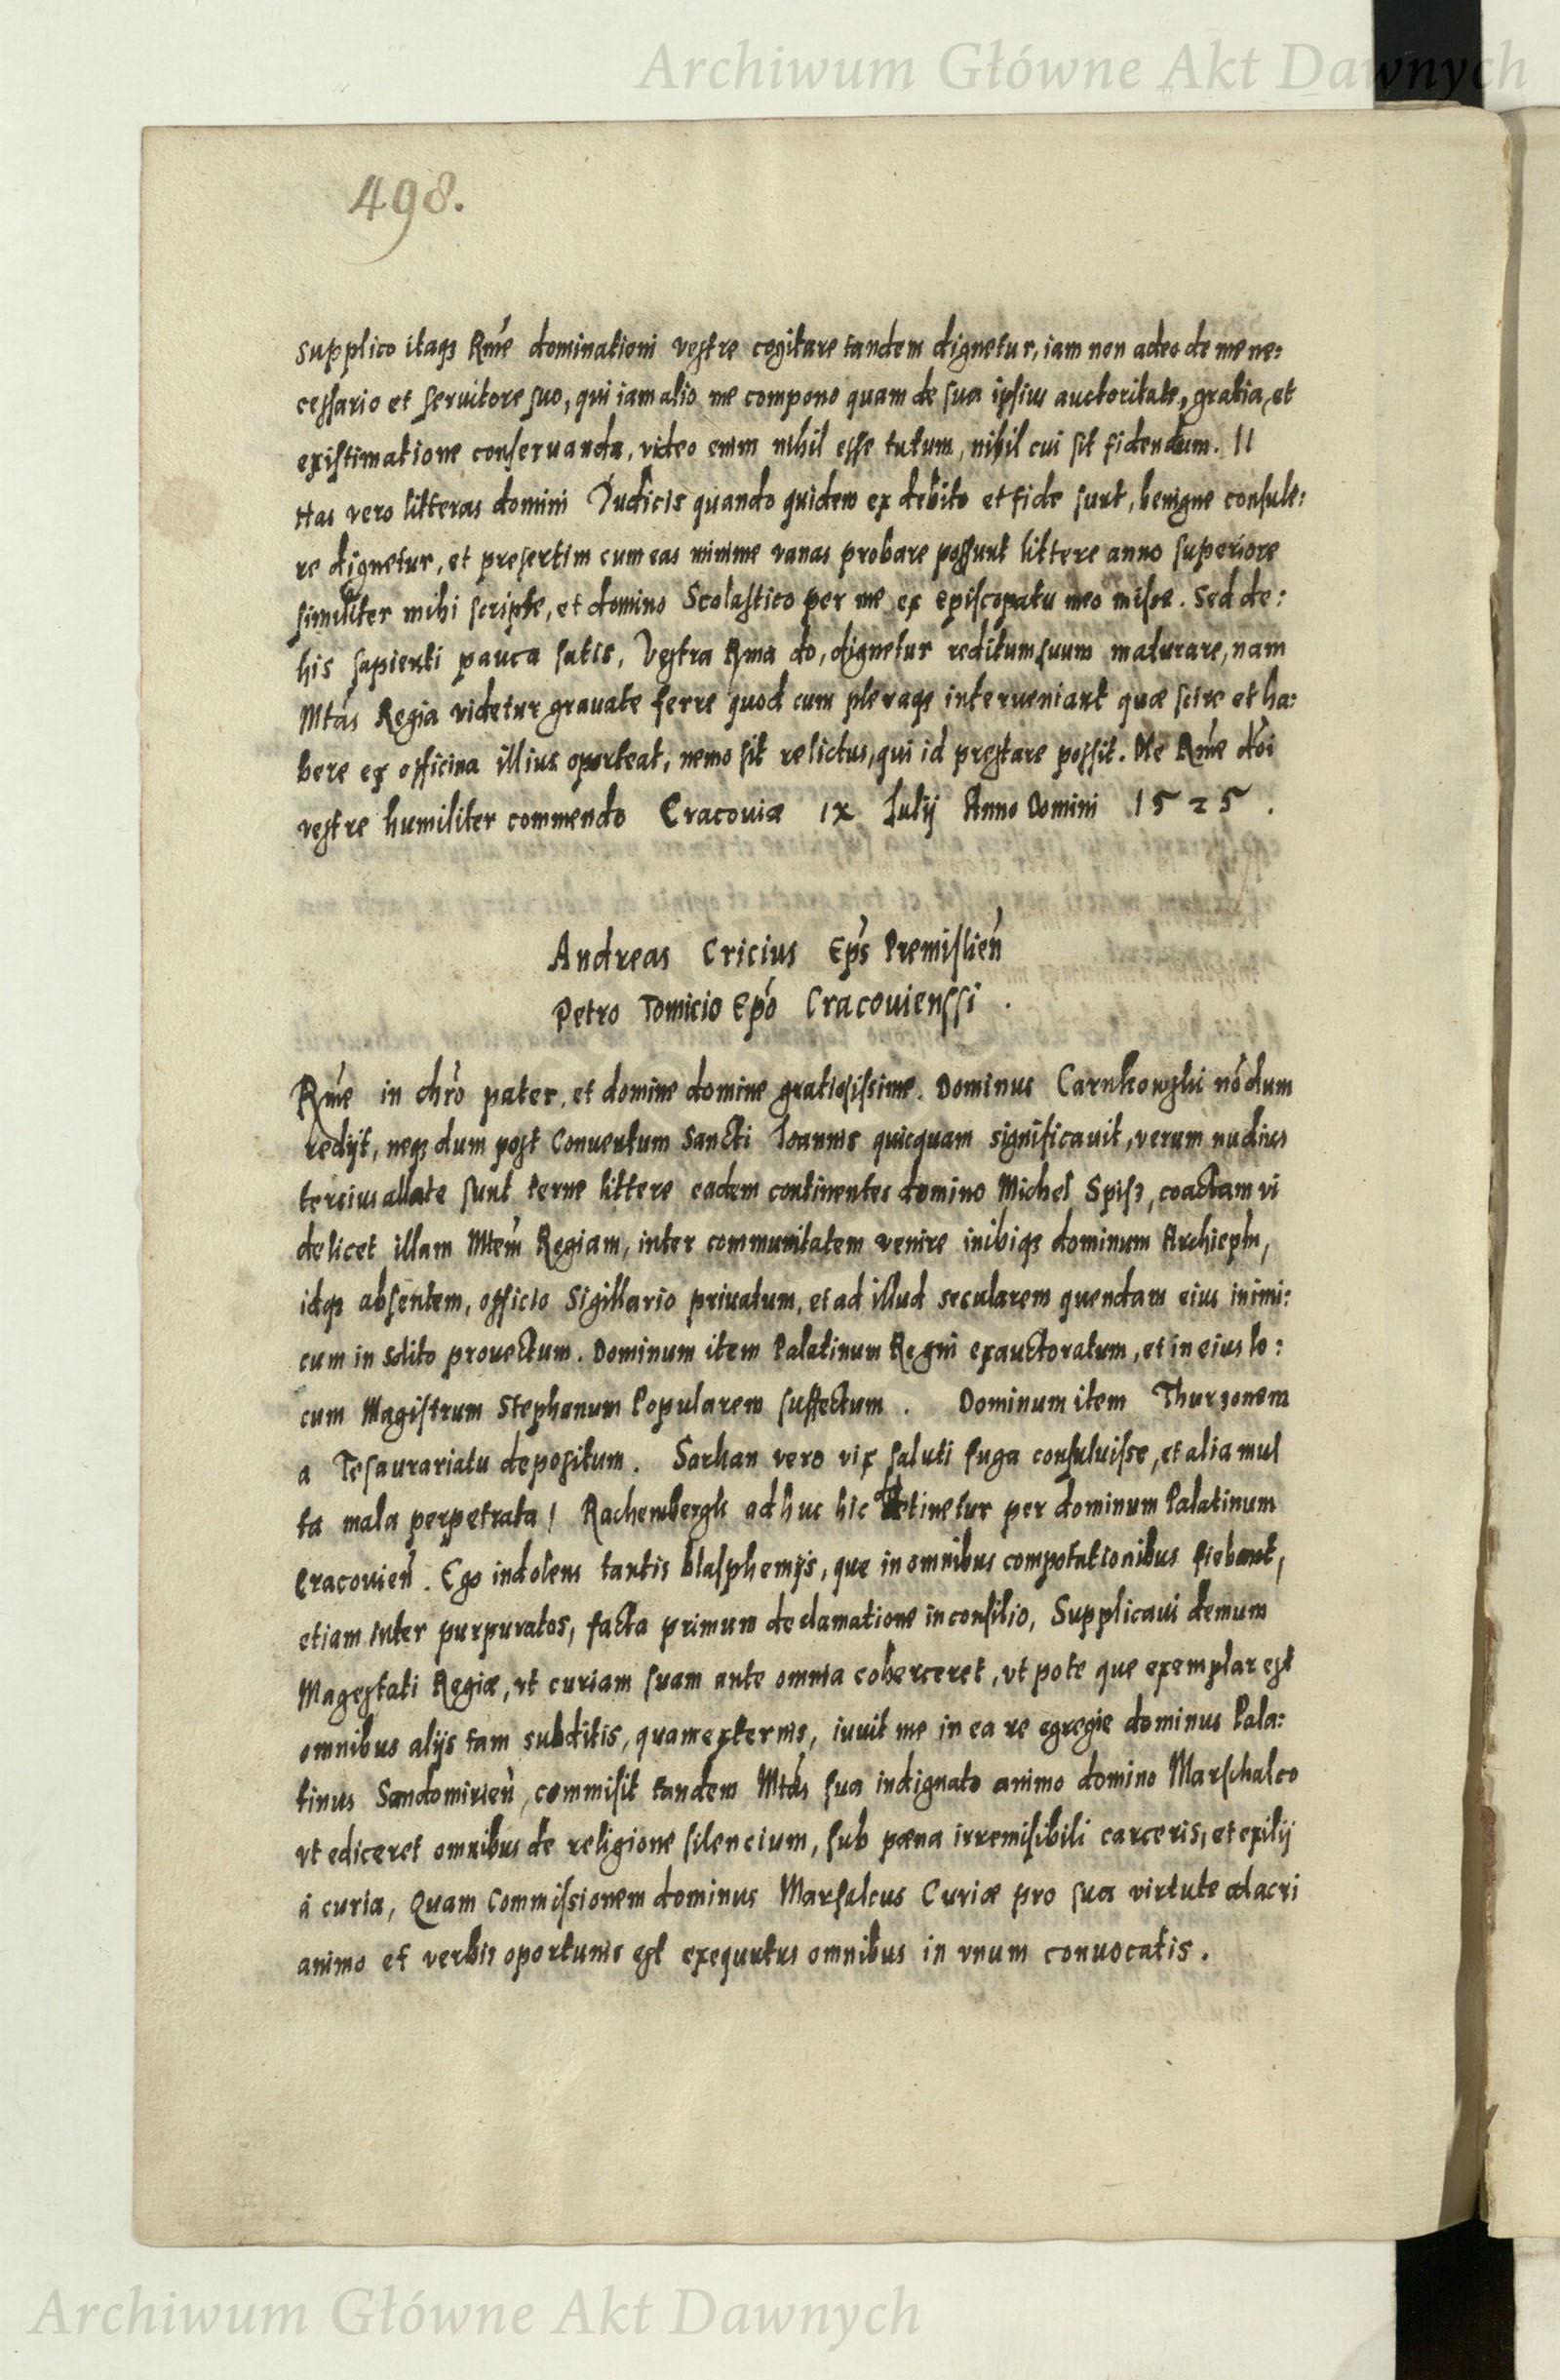 Archiwum Główne Akt Dawnych
498.
supplico itaqз Rme dominationi vestre cogitare tandem dignetur, iam non adeo de me ne:
cessario et servitore suo, qui iam alio me compono quam de sua ipsius auctoritate, gratia, et
existimatione conseruanda, video enim nihil esse tutum, nihil cui sit fidendum. ||
Has vero litteras domini Judicis quando quidem ex debito et fide sunt, benigne consule:
re dignetur, et presertim cum eas minime vanas probare possunt littere anno superiore
similiter mihi scripte, et domino Scolastico per me ex episcopatu meo misse. Sed de:
his sapienti pauca satis, Vestra Rma do, dignetur reditum suum maturare, nam
Mtas Regia videtur gravate ferre quod cum pleraqз interveniant quæ scire et ha:
bere ex officina illius oporteat, nemo sit relictus, qui id prestare possit. Me Rme doi
vestre humiliter commendo Cracouiæ ix Julij Anno Domini 1525.
Andreas Cricius Eps Premislien
Petro Tomicio Epo Cracouienssi.
Rme in chro pater, et domine domine gratiosissime. Dominus Carnkowski nodum
redijt, neqз dum post Conventum Sancti Joannis quicquam significavit, verum nudius
tercius allate sunt terne littere eadem continentes domino Michel Spisз, coactam vi
delicet illam Mtem Regiam, inter communitatem venire inibiqз dominum Archiepm,
idqз absentem, officio Sigillario privatum, et ad illud secularem quendam eius inimi:
cum in solito provectum. Dominum item Palatinum Regni exauctoratum, et in eius lo:
cum Magistrum Stephanum Popularem suffectum. Dominum item Thurzonem
a Tesaurariatu depositum. Sarkan vero vix saluti fuga consuluisse, et alia mul
ta mala perpetrata! Rachembergk adhuc hic detinetur per dominum Palatinum
Cracovien. Ego indolens tantis blasphemijs, que in omnibus compotationibus fiebant,
etiam inter purpuratos, facta primum declamatione in consilio, Supplicavi demum
Magestati Regiæ, vt curiam suam ante omnia coherceret, vt pote que exemplar est
omnibus alijs tam subditis, quam externis, iuvit me in ea re egregie dominus Pala:
tinus Sandomirien, commisit tandem Mtas sua indignato animo domino Marschalco
vt ediceret omnibus de religione silencium, sub pæna irremisibili carceris, et exilij
à curia, Quam Commissionem dominus Marsalcus Curiæ pro sua virtute alacri
animo et verbis oportunis est exequutus omnibus in vnum convocatis.
Archiwum Główne Akt Dawnych